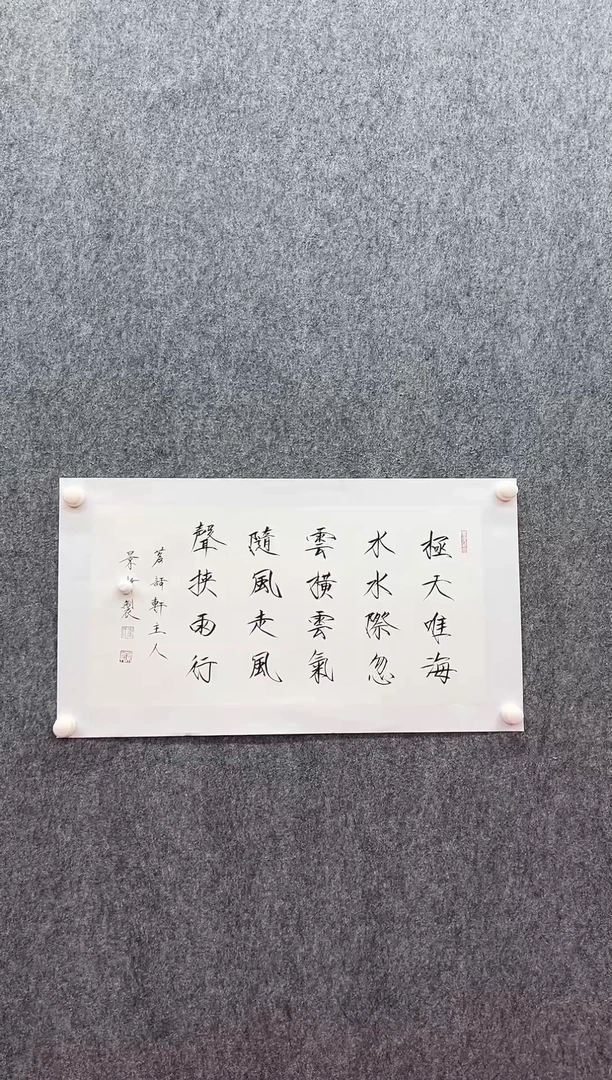 極天唯海
水水際忽
雲橫雲氣
隨風走風
聲挾雨行
茗譯軒主人
景 製